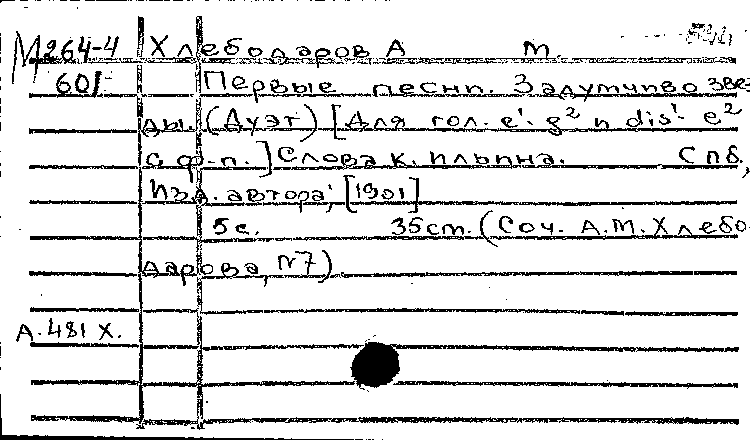 М264-4 Хлебодаров А М.
601 Первые песни. Задумчиво звез
ды. (Дуэт) [Для гол. e¹-g² и dis¹-e²
с ф-п.] Слова К. Ильина. Спб,
Изд. автора, [1901]
5с. 35ст. (Соч. А.М. Хлебо
дарова, №7).
А.481 Х.